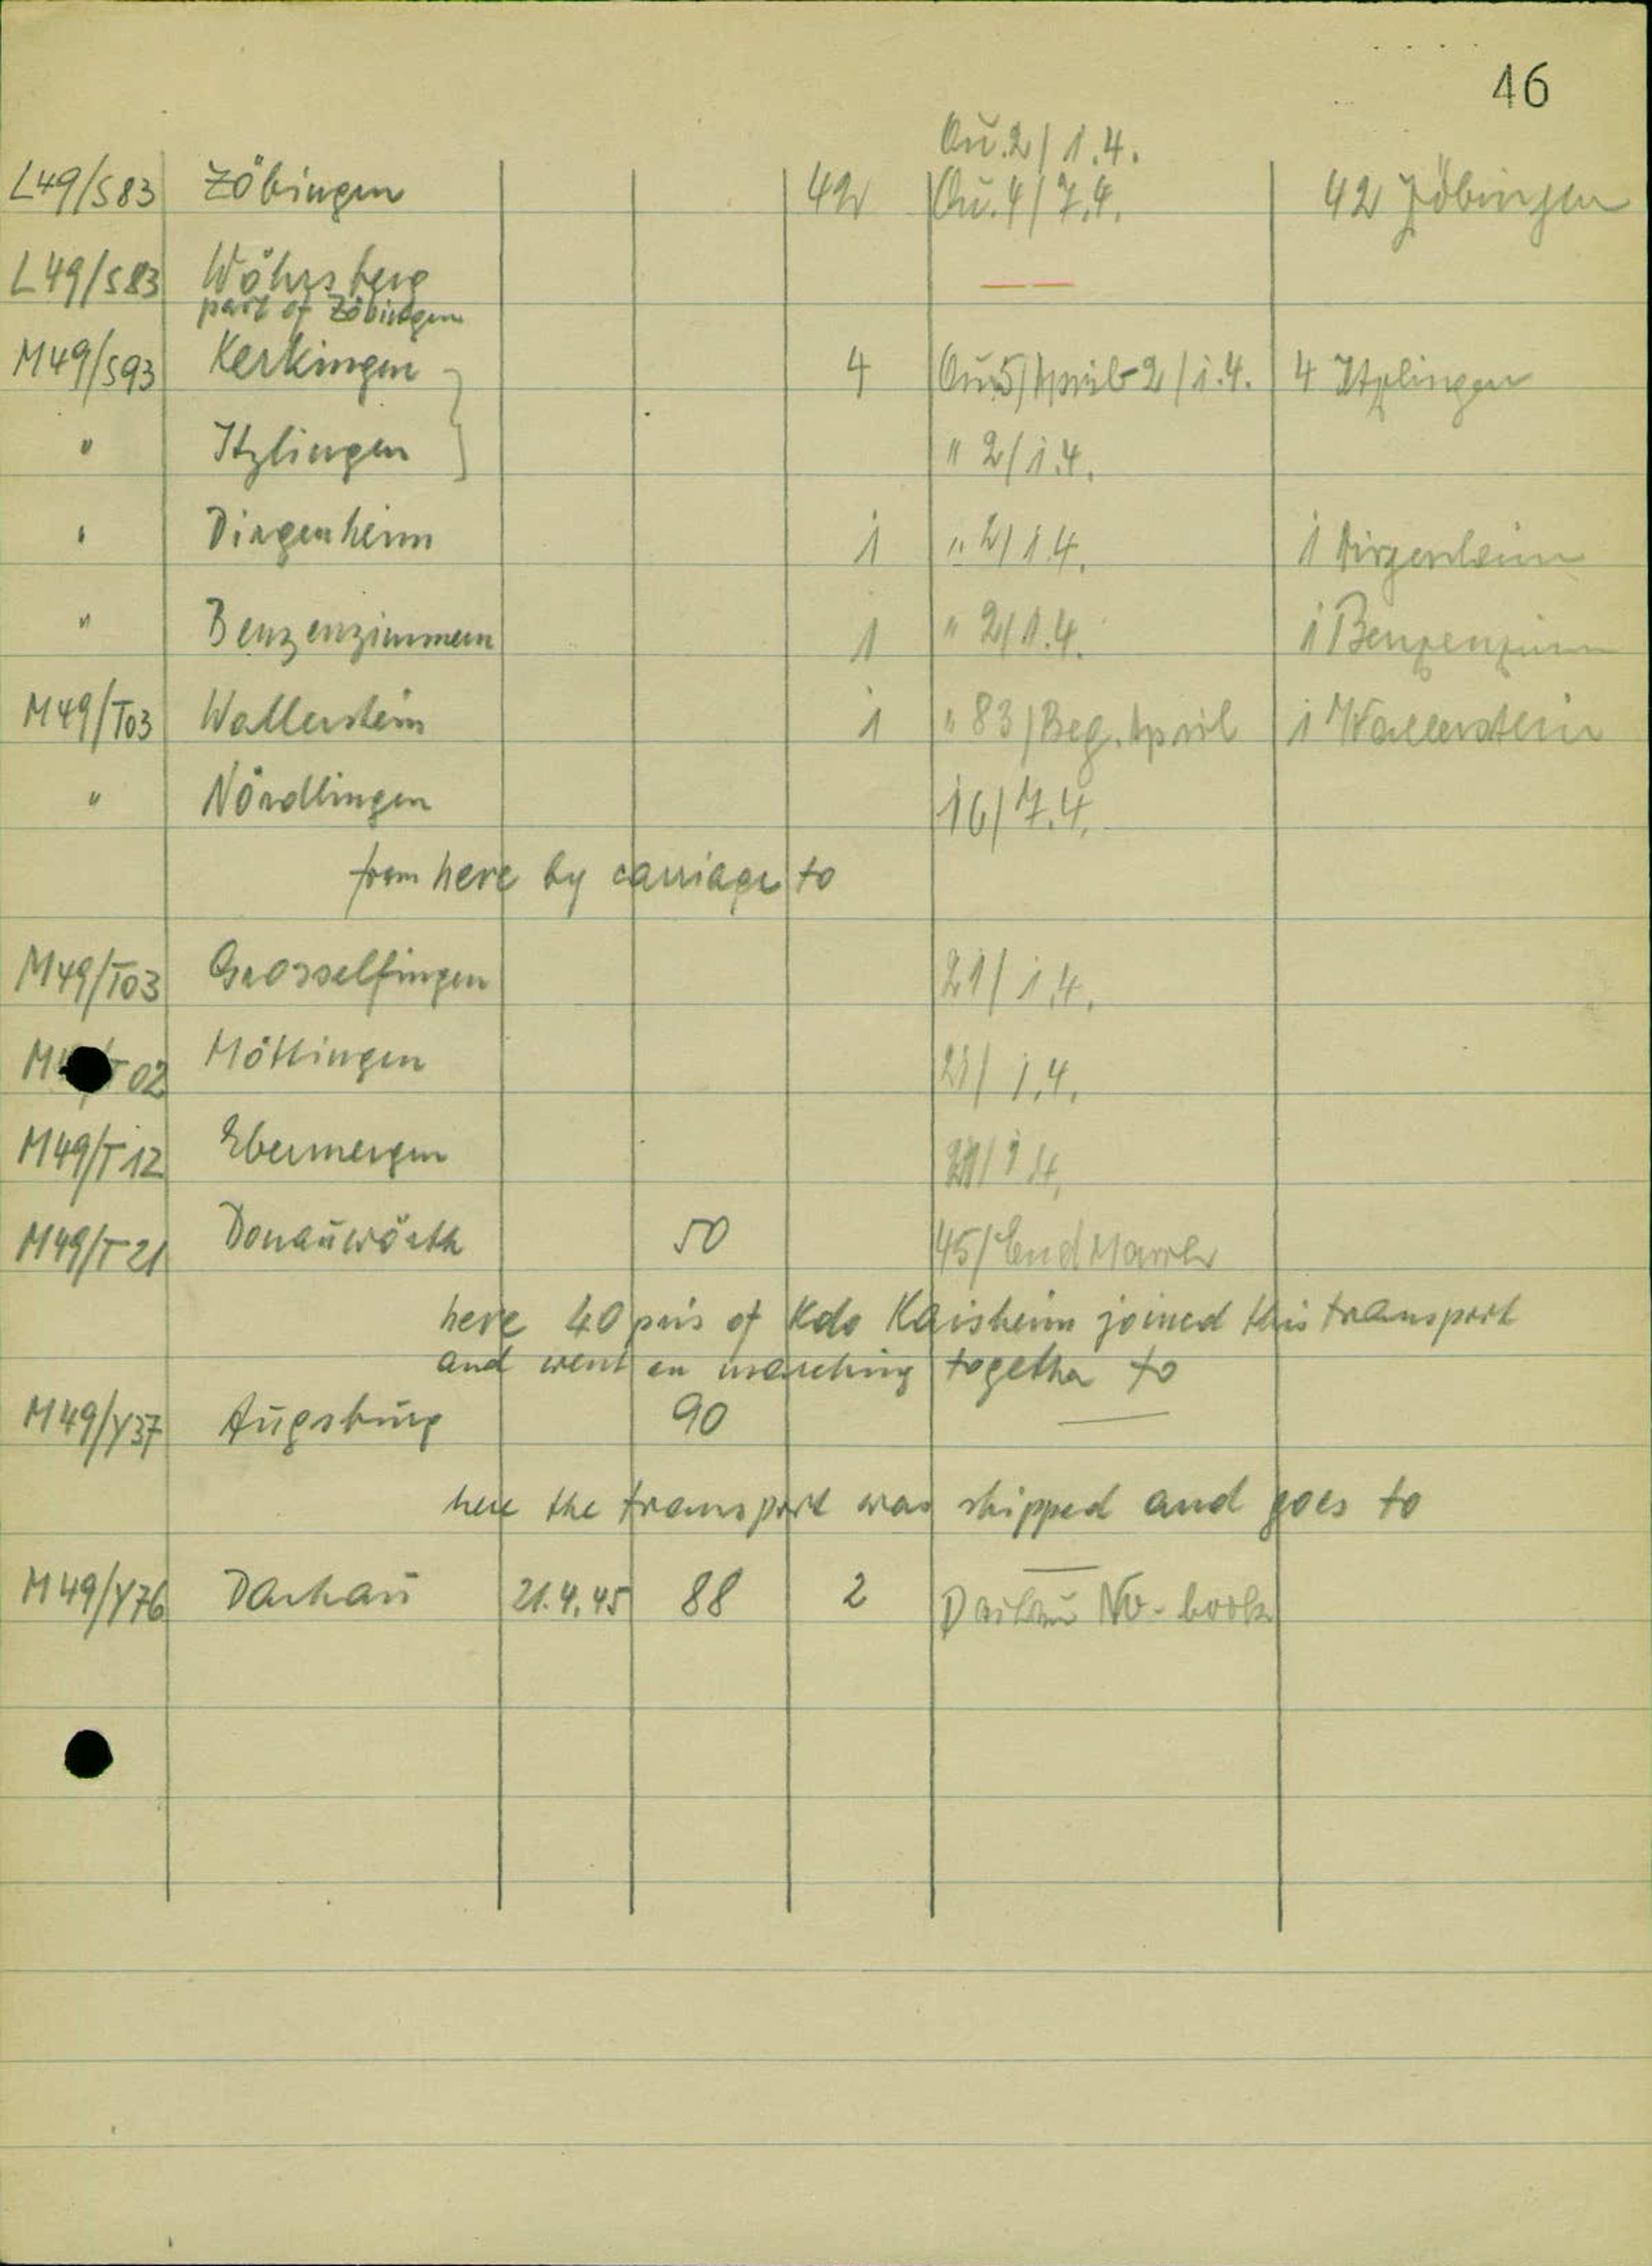 46
Qu. 2 / 1.4.
L49/S83 Zöbingen 42 Qu. 4 / 7.4. 42 Zöbingen
L49/S83 Wöhrsberg — —
part of Zöbingen
M49/S93 Kerkingen 4 Qu 5/April - 2 / 1.4. 4 Itzlingen
" Itzlingen " 2 / 1.4.
" Dirgenheim 1 " 2 / 1.4. 1 Dirgenheim
" Benzenzimmern 1 " 2 / 1.4. 1 Benzenzimm
M49/T03 Wallerstein 1 " 83 / Beg. April 1 Wallerstein
" Nördlingen 16 / 7.4.
from here by carriage to
M49/T03 Grosselfingen 21 / 1.4.
M49/T02 Möttingen 21 / 1.4.
M49/T12 Ebermergen
M49/T21 Donauwörth 50 45 / End March
here 40 pris of Kdo Kaisheim joined this transport
and went on marching together to
M49/Y37 Augsburg 90 —
here the transport was shipped and goes to
M49/Y76 Dachau 21.4.45 88 2 Dachau No - book